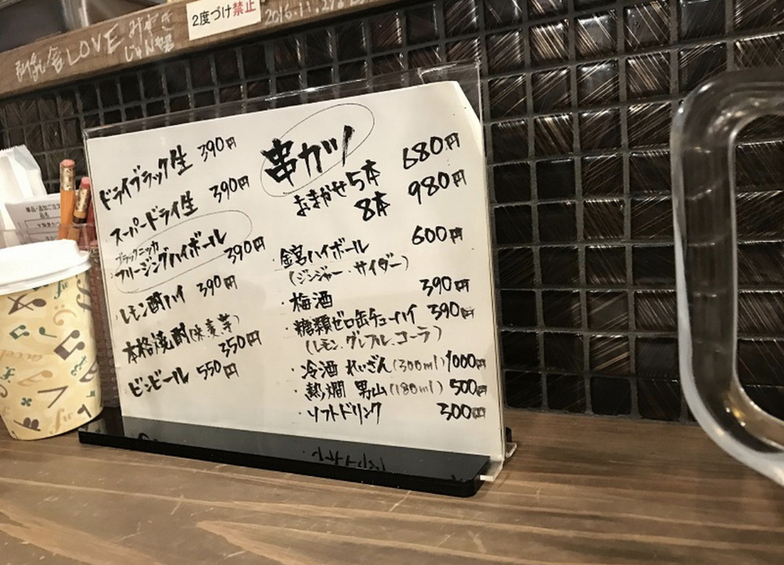 2度づけ禁止
LOVE
2016.11.29
ドライブラック生 390円
スーパードライ生 390円
ブラックニッカ
フリージングハイボール 390円
レモン酎ハイ 390円
本格焼酎(米麦芋) 350円
ビンビール 550円
串カツ
おまかせ5本 680円
8本 980円
・金宮ハイボール 600円
(ジンジャー・サイダー)
・梅酒 390円
・糖類ゼロ缶チューハイ 390円
(レモン、グレフル、コーラ)
・冷酒 れいざん(300ml) 1000円
・熱燗 男山(180ml) 500円
・ソフトドリンク 300円